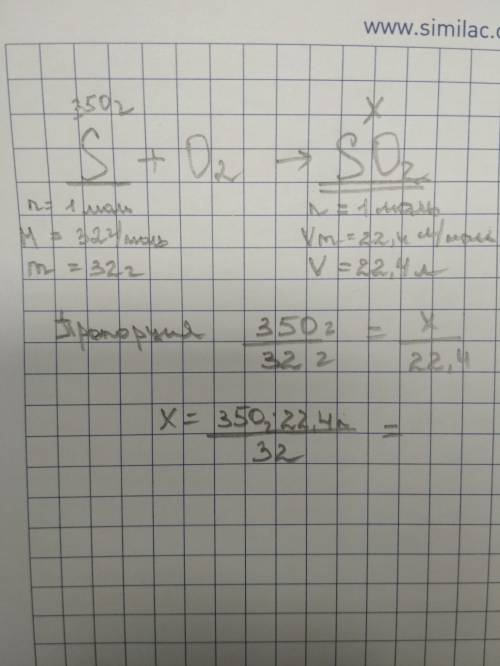 www.similac.
350г X
S + O₂ → SO₂
n = 1 моль n = 1 моль
M = 32 г/моль Vm = 22,4 л/моль
m = 32 г V = 22,4 л
Пропорция 350 г / 32 г = X / 22,4
X = 350 · 22,4 л / 32 =